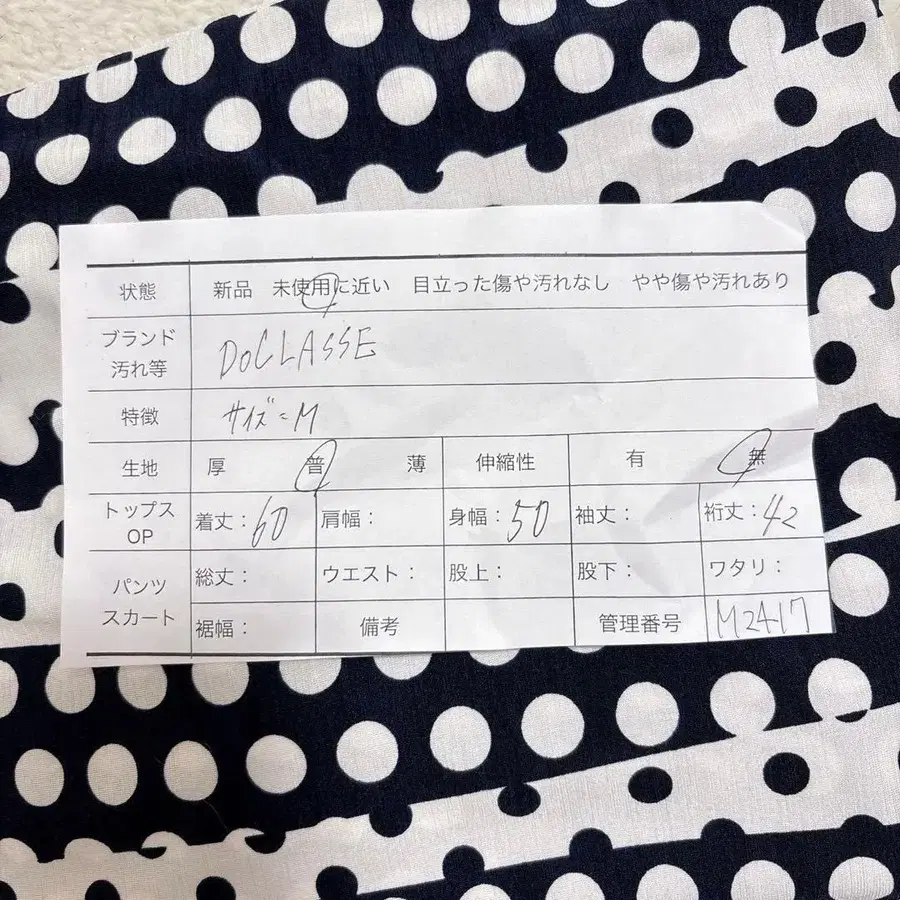 状態 新品 未使用に近い 目立った傷や汚れなし やや傷や汚れあり
ブランド
汚れ等 DoCLASSE
特徴 サイズ=M
生地 厚 普 薄 伸縮性 有 無
トップス
OP 着丈:60 肩幅: 身幅:50 袖丈: 裄丈:42
パンツ
スカート 総丈: ウエスト: 股上: 股下: ワタリ:
裾幅: 備考 管理番号 M2417